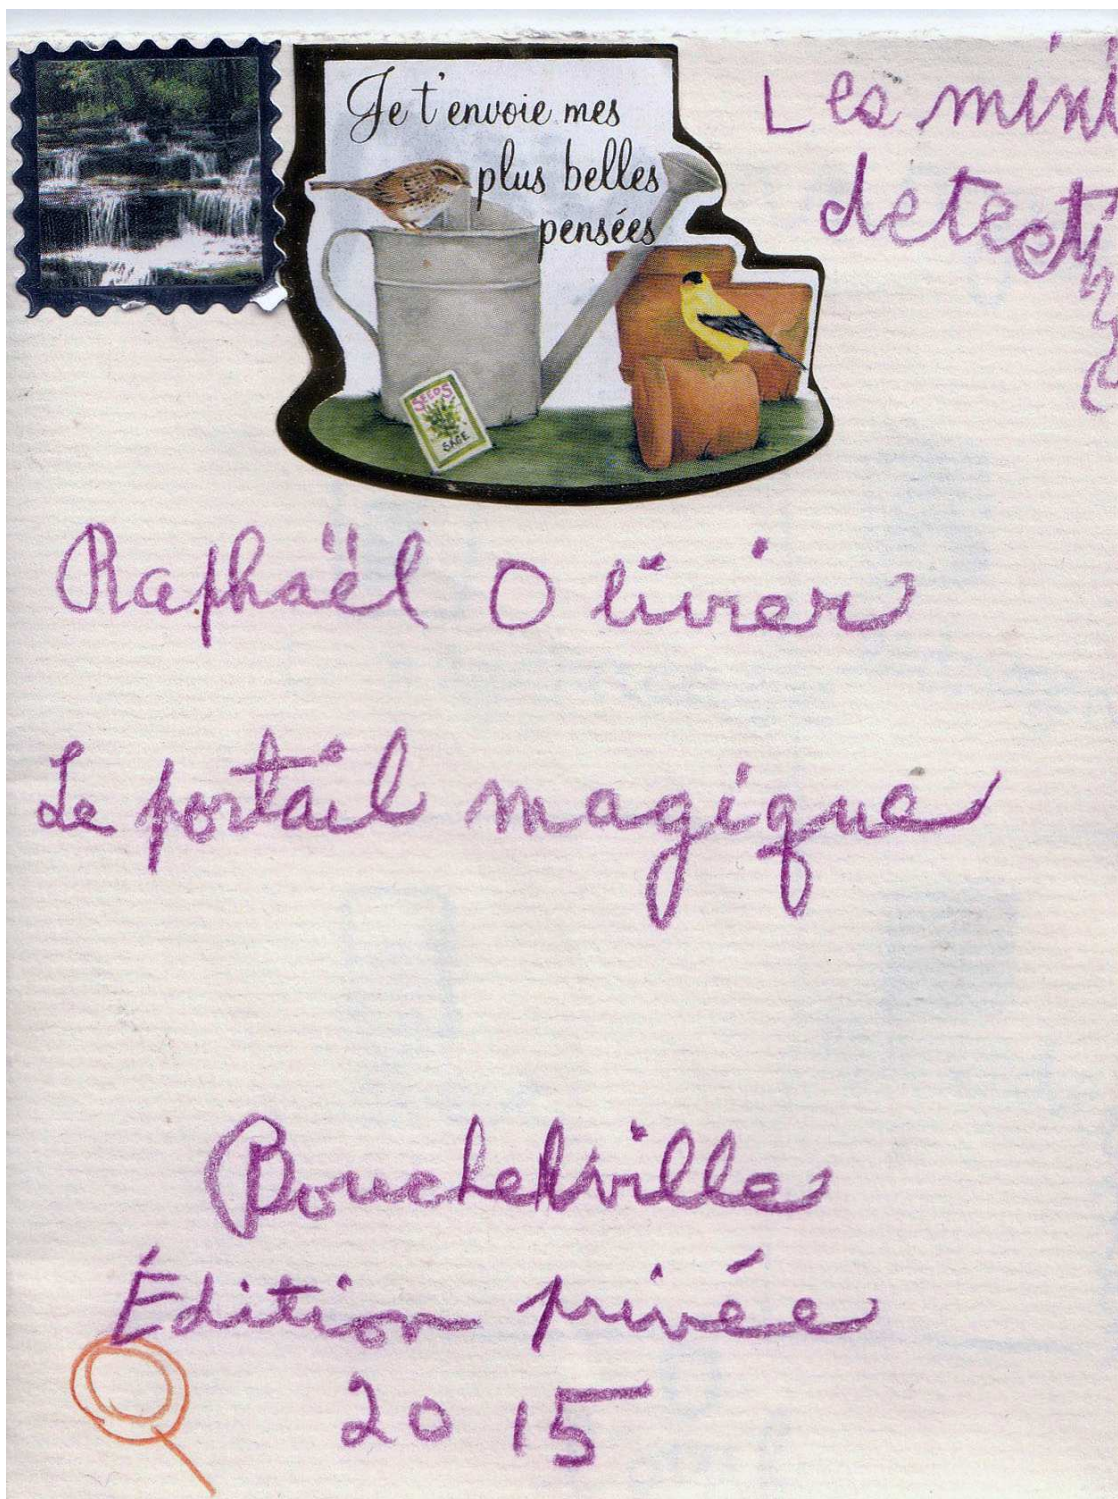 Je t'envoie mes
plus belles
pensées
Les mini
detectives
SEEDS
SAGE
Raphaël Olivier
Le portail magique
Bouchelville
Édition privée
2015